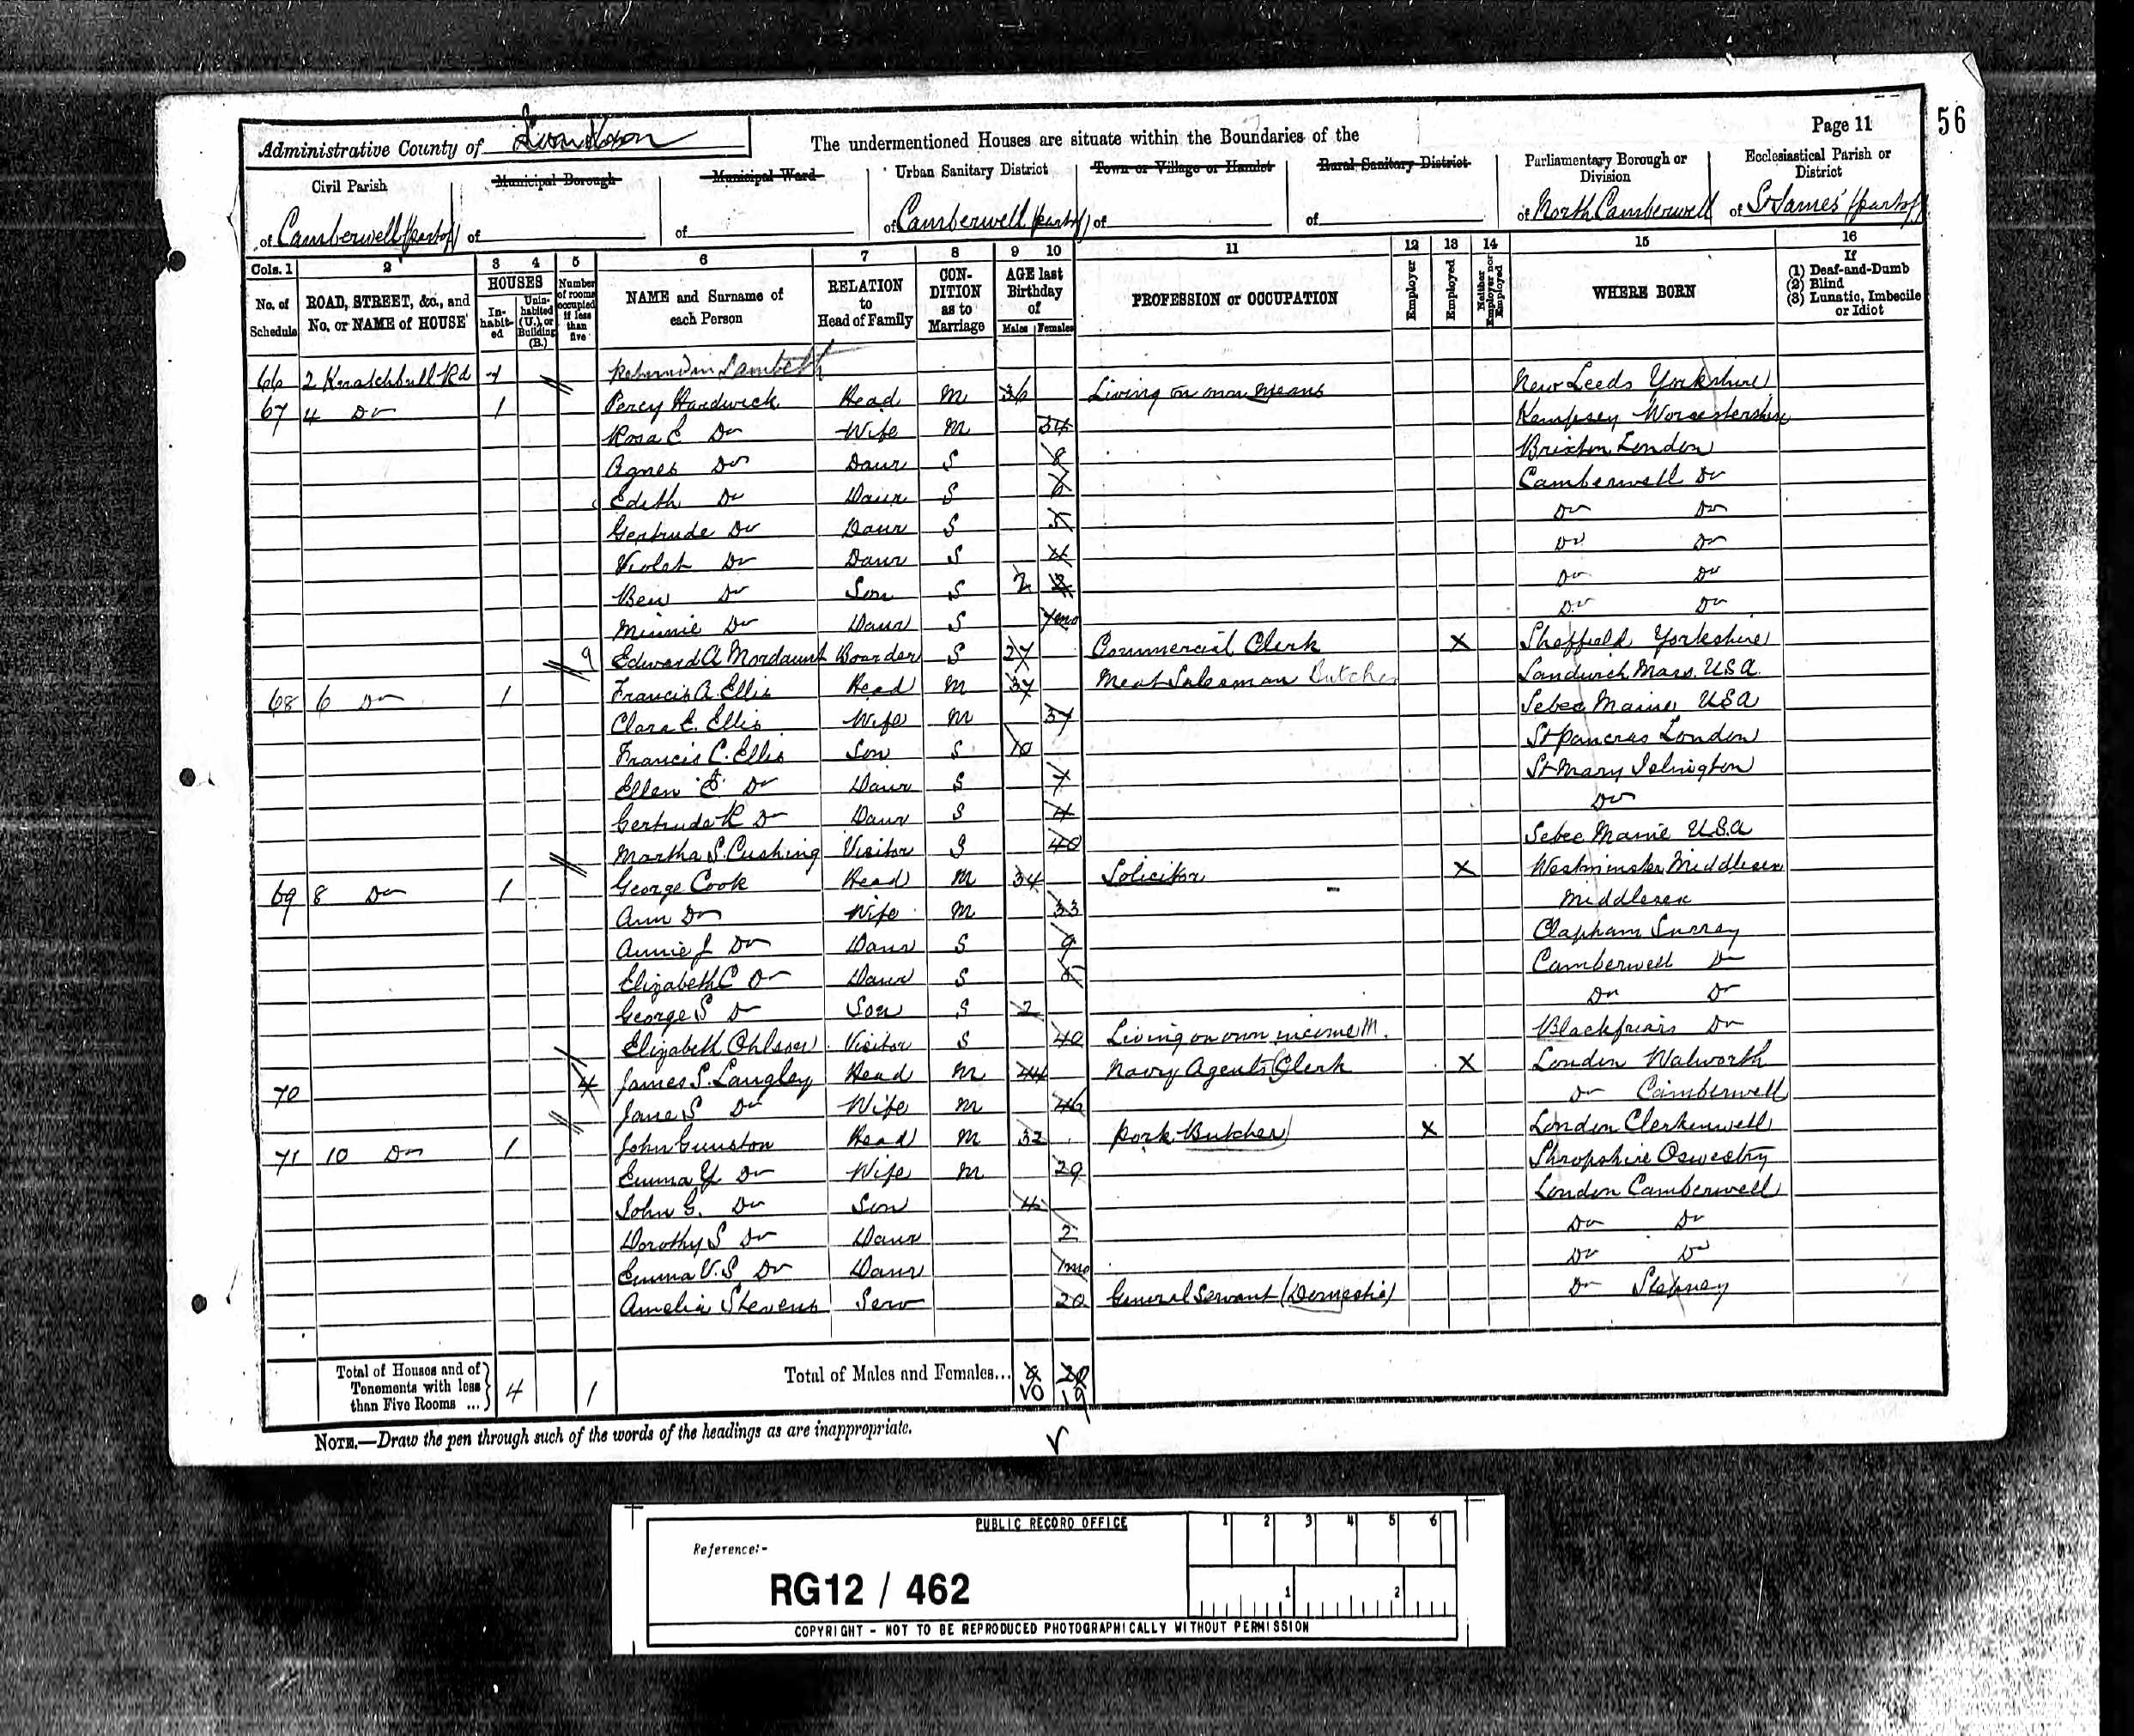 56
Page 11
Administrative County of London
The undermentioned Houses are situate within the Boundaries of the
Civil Parish
of Camberwell (part of)
Municipal Borough
of
Municipal Ward
of
Urban Sanitary District
of Camberwell (part of)
Town or Village or Hamlet
of
Rural Sanitary District
of
Parliamentary Borough or Division
of North Camberwell
Ecclesiastical Parish or District
of St James' (part of)
Cols. 1 2 3 4 5 6 7 8 9 10 11 12 13 14 15 16
No. of Schedule
ROAD, STREET, &c., and No. or NAME of HOUSE
HOUSES
Inhabited
Uninhabited (U.), or Building (B.)
Number of rooms occupied if less than five
NAME and Surname of each Person
RELATION to Head of Family
CONDITION as to Marriage
AGE last Birthday of
Males Females
PROFESSION or OCCUPATION
Employer
Employed
Neither Employer nor Employed
WHERE BORN
If
(1) Deaf-and-Dumb
(2) Blind
(3) Lunatic, Imbecile or Idiot
66 2 Knatchbull Rd Lambeth
67 4 Do 1 Percy Hardwick Head M 36 Living on own Means New Leeds Yorkshire
Rosa E Do Wife M 34 Kempsey Worcestershire
Agnes Do Daur S 8 Brixton London
Edith Do Daur S 6 Camberwell Do
Gertrude Do Daur S 5 Do Do
Violet Do Daur S 4 Do Do
Ben Do Son S 2 Do Do
Minnie Do Daur S 7mo Do Do
9 Edward A Mordaunt Boarder S 27 Commercial Clerk X Sheffield Yorkshire
68 6 Do 1 Francis A. Ellis Head M 37 Meat Salesman Butcher Sandwich Mass. U.S.A.
Clara E. Ellis Wife M 37 Sebec Maine USA
Francis C. Ellis Son S 10 St Pancras London
Ellen E. Do Daur S 7 St Mary Islington
Gertrude R Do Daur S 4 Do
Martha S. Cushing Visitor S 40 Sebec Maine U.S.A
69 8 Do 1 George Cook Head M 34 Solicitor X Westminster Middlesex
Ann Do Wife M 33 Middlesex
Annie J Do Daur S 9 Clapham Surrey
Elizabeth C Do Daur S 5 Camberwell Do
George S Do Son S 2 Do Do
Elizabeth Ohlson Visitor S 40 Living on own income M. Blackfriars Do
70 4 James S. Langley Head M 44 Navy Agents Clerk X London Walworth
Jane S Do Wife M 46 Do Camberwell
71 10 Do 1 John Gunston Head M 32 Pork Butcher X London Clerkenwell
Emma Y Do Wife M 29 Shropshire Oswestry
John G. Do Son 4 London Camberwell
Dorothy S Do Daur 2 Do Do
Emma V. S Do Daur 1mo Do Do
Amelia Stevens Serv 20 General Servant (Domestic) Do Stepney
Total of Houses and of Tenements with less than Five Rooms ... 4 1
Total of Males and Females... 9 20
10 19
NOTE.—Draw the pen through such of the words of the headings as are inappropriate.
PUBLIC RECORD OFFICE
1 2 3 4 5 6
Reference:-
RG12 / 462
1 2
COPYRIGHT - NOT TO BE REPRODUCED PHOTOGRAPHICALLY WITHOUT PERMISSION